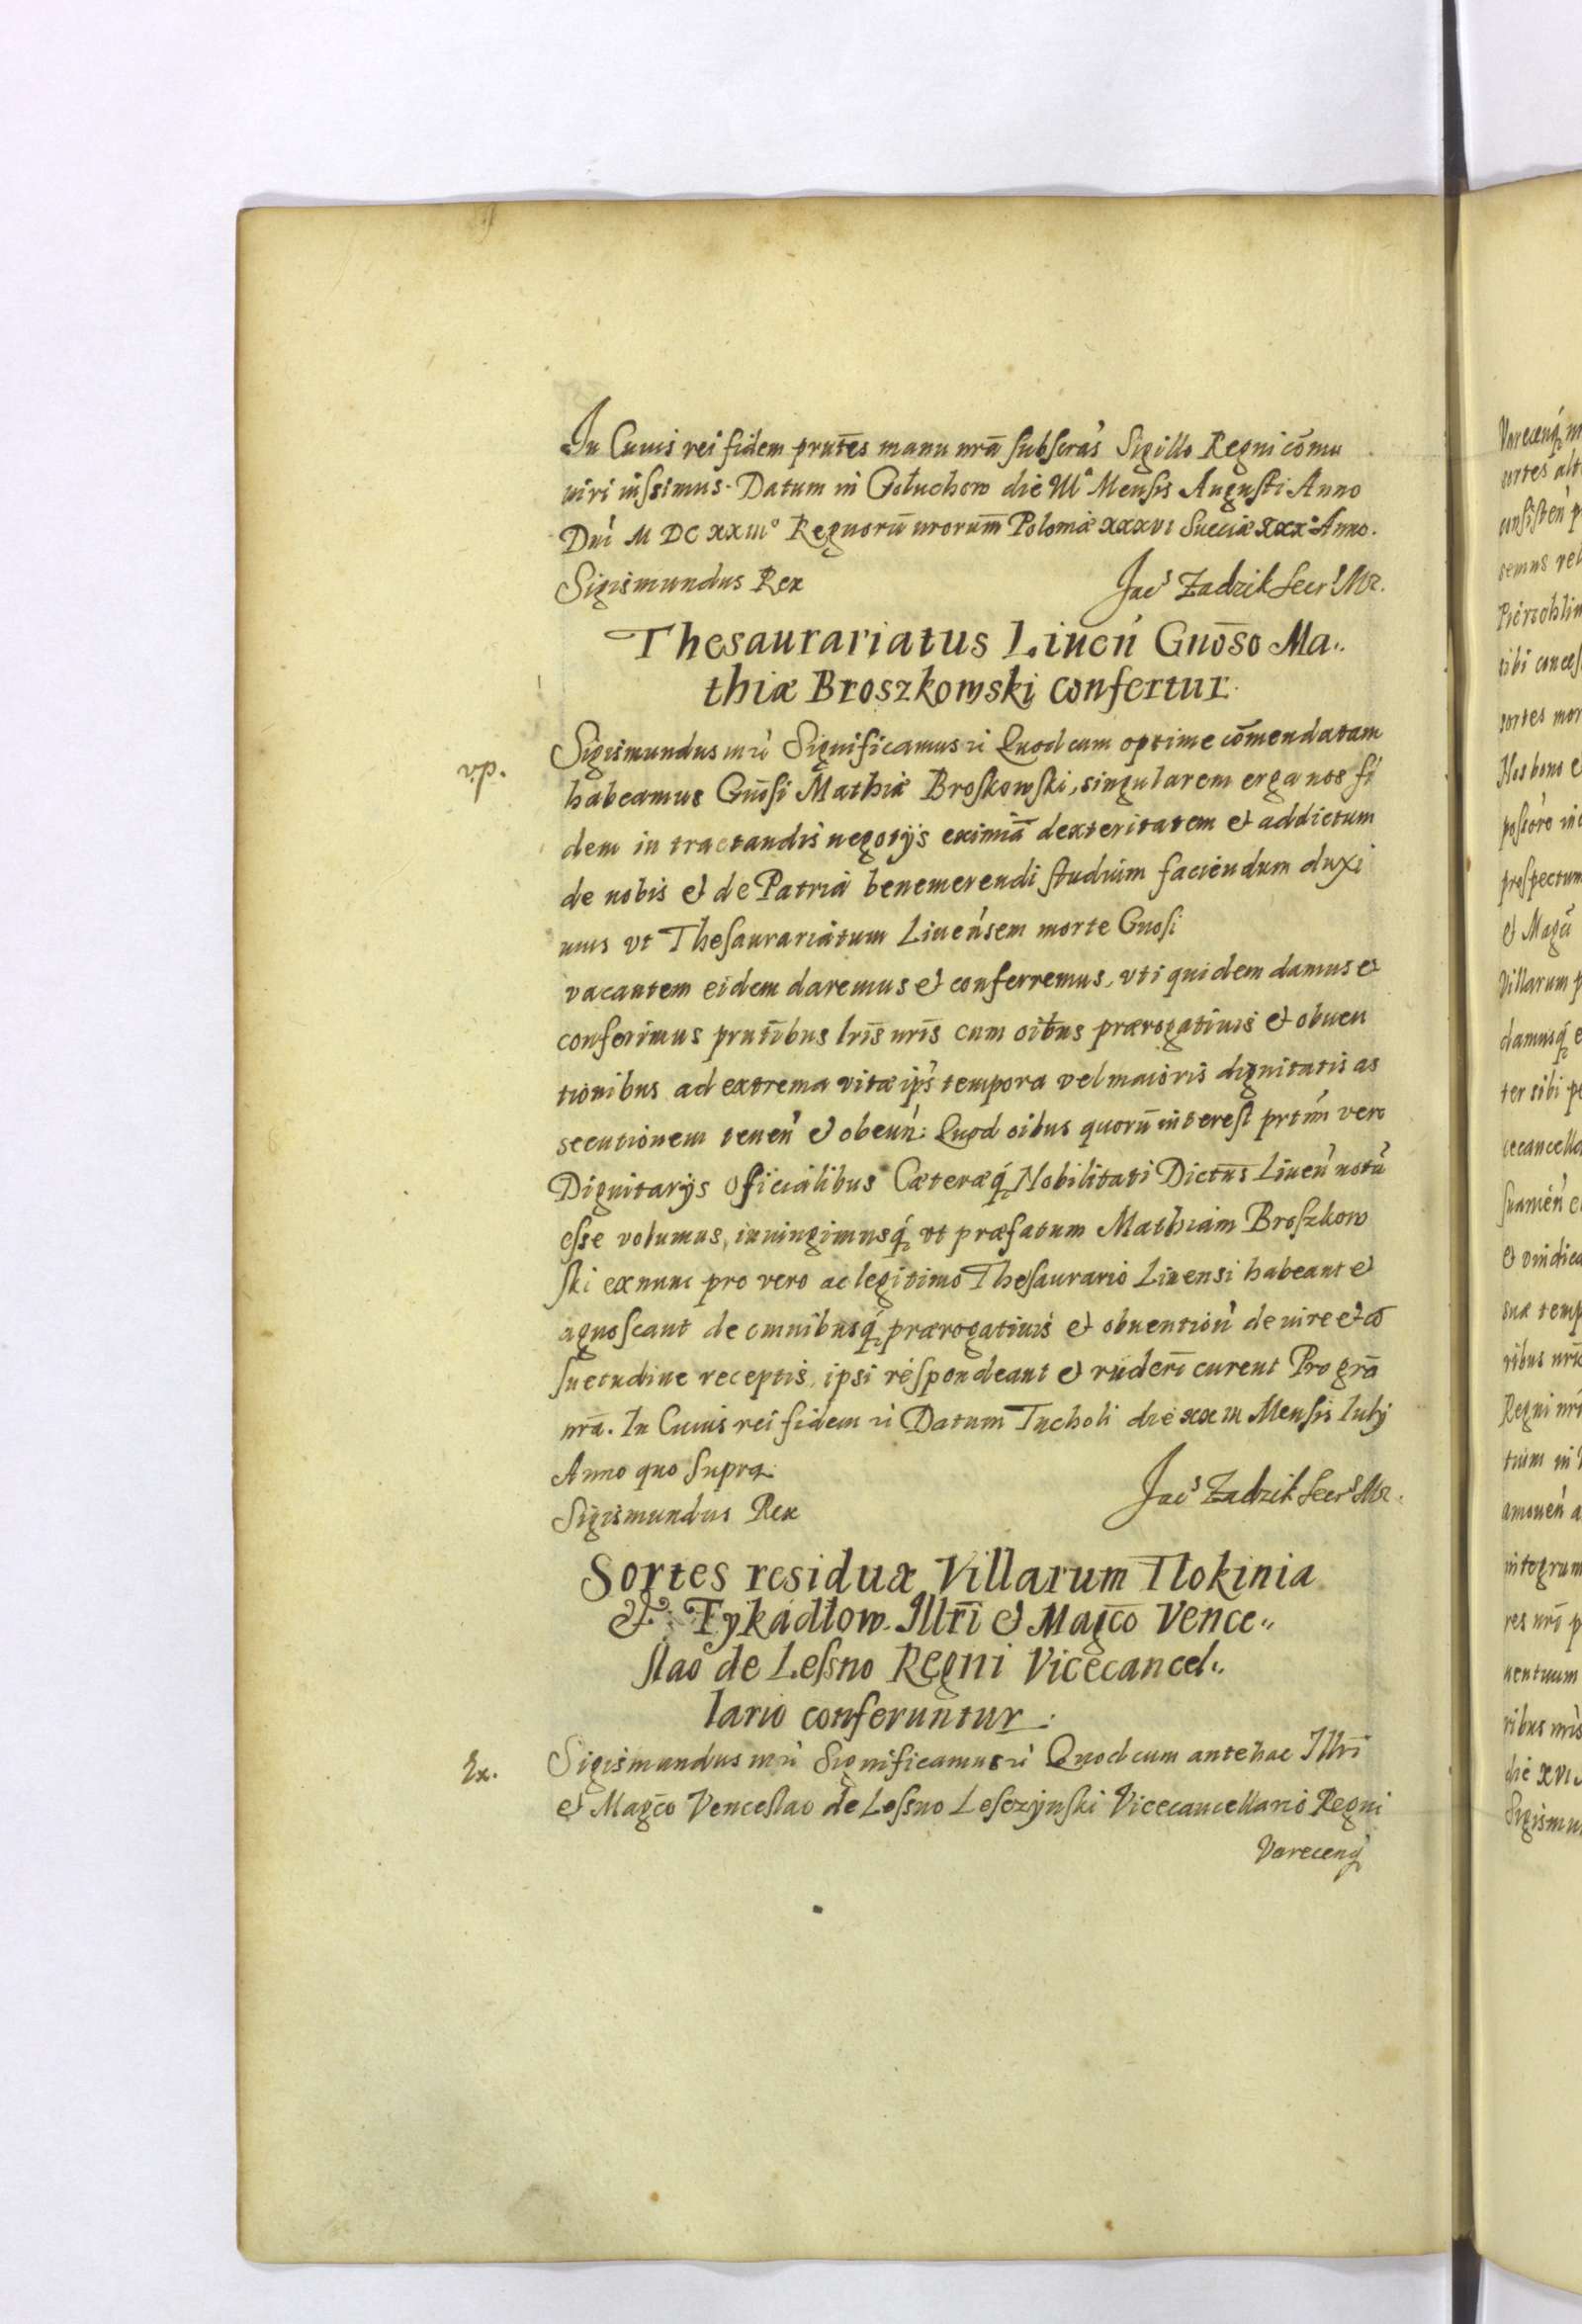 In Cuius rei fidem prntēs manu nrā subscras̀ Sigillo Regni cōmu
niri iussimus. Datum in Gołuchow die IIIª Mensis Augusti Anno
Dni M DC XXIIIº Regnorū nrorum̄ Poloniæ XXXVI Sueciæ XXXº Anno.
Sigismundus Rex Jacs Zadzik Secrs Mr.
Thesaurariatus Liueń Gnōso Ma„
thiæ Broszkowski confertur.
v.p.
Sigismundus etc Significamus etc Quod cum optime cōmendatam
habeamus Gnōsi Mathiæ Broskowski, singularem erga nos fi
dem in tractandis negotijs eximiā dexteritatem et addictum
de nobis et de Patria benemerendi studium faciendum duxi
mus vt Thesaurariatum Liueńsem morte Gnosi
vacantem eidem daremus et conferremus, vti quidem damus et
conferimus prntībus lrīs nrīs cum oībus prærogatiuis et obuen
tionibus ad extrema vitæ ips̀ tempora vel maioris dignitatis as
secutionem teneń et obeuń: Quod oibus quorū interest prtim̀ vero
Dignitarijs Officialibus Cæteræq́ Nobilitati Dictus̄ Liueń notū
esse volumus, iniungimusq́ vt præfatum Mathiam Broszkow
ski ex nunc pro vero ac legitimo Thesaurario Liuensi habeant et
agnoscant de omnibusq́ prærogatiuis et obuention̍ de iure et cō
suetudine receptis, ipsi respondeant et rnderī curent Pro grā
nrā. In Cuius rei fidem etc Datum Tucholi die XXIII Mensis Iulij
Anno quo supra.
Sigismundus Rex Jacs Zadzik Secrs Mr.
Sortes residuæ Villarum Tłokinia
et Tykadłow Illrī et Magcō Vence„
slao de Lessno Regni Vicecancel„
lario conferuntur.
Ex.
Sigismundus etc Significamus etc Quod cum antehac Illrī
et Magcō Venceslao de Lessno Lesczynski Vicecancellario Regni
Varecenq́